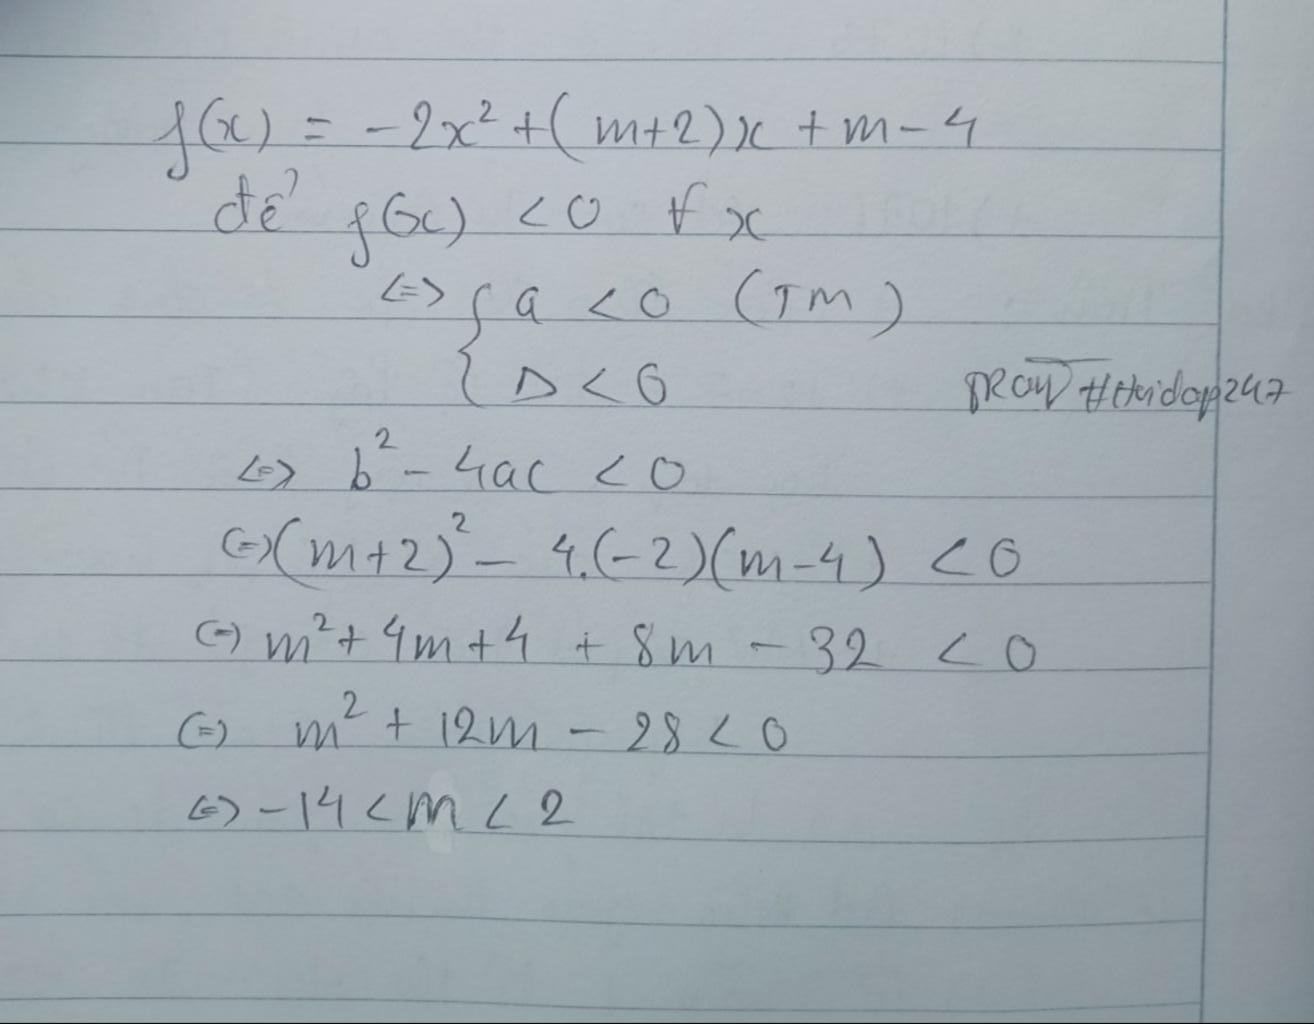 f(x) = -2x² + (m+2)x + m - 4
để f(x) < 0 ∀ x
<=> { a < 0 (TM)
{ Δ < 0
<=> b² - 4ac < 0
(=) (m+2)² - 4.(-2)(m-4) < 0
(=) m² + 4m + 4 + 8m - 32 < 0
(=) m² + 12m - 28 < 0
<=> -14 < m < 2